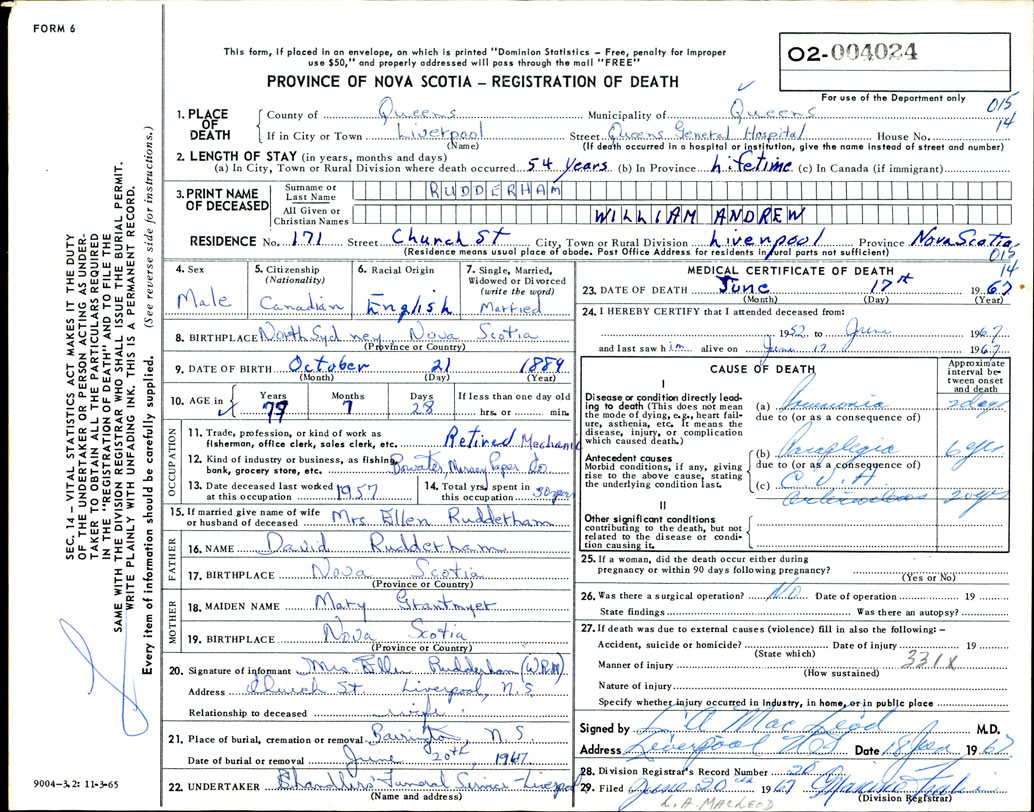 FORM 6
This form, if placed in an envelope, on which is printed "Dominion Statistics – Free, penalty for improper
use $50," and properly addressed will pass through the mail "FREE"
O2-004024
PROVINCE OF NOVA SCOTIA – REGISTRATION OF DEATH
For use of the Department only
015
14
1. PLACE OF DEATH
County of Queens Municipality of Queens
If in City or Town Liverpool Street Queens General Hospital House No.
(Name) (If death occurred in a hospital or institution, give the name instead of street and number)
2. LENGTH OF STAY (in years, months and days)
(a) In City, Town or Rural Division where death occurred 54 years (b) In Province Lifetime (c) In Canada (if immigrant)
3. PRINT NAME OF DECEASED
Surname or Last Name RUDDERHAM
All Given or Christian Names WILLIAM ANDREW
RESIDENCE No. 171 Street Church St City, Town or Rural Division Liverpool Province Nova Scotia
(Residence means usual place of abode. Post Office Address for residents in rural parts not sufficient)
015
14
4. Sex Male
5. Citizenship (Nationality) Canadian
6. Racial Origin English
7. Single, Married, Widowed or Divorced (write the word) Married
8. BIRTHPLACE North Sydney Nova Scotia
(Province or Country)
9. DATE OF BIRTH October 21 1889
(Month) (Day) (Year)
10. AGE in Years Months 7 Days 28 If less than one day old
hrs. or min.
OCCUPATION
11. Trade, profession, or kind of work as
fisherman, office clerk, sales clerk, etc. Retired Mechanic
12. Kind of industry or business, as fishing,
bank, grocery store, etc. Bowater Mersey Paper Co.
13. Date deceased last worked
at this occupation 1957
14. Total yrs. spent in
this occupation 30 years
15. If married give name of wife
or husband of deceased Mrs Ellen Rudderham
FATHER
16. NAME David Rudderham
17. BIRTHPLACE Nova Scotia
(Province or Country)
MOTHER
18. MAIDEN NAME Mary Grantmyer
19. BIRTHPLACE Nova Scotia
(Province or Country)
20. Signature of informant Mrs. Ellen Rudderham (W.R.M)
Address Church St. Liverpool, N.S
Relationship to deceased wife
21. Place of burial, cremation or removal Barrington, N S
Date of burial or removal June 20th, 1967
22. UNDERTAKER Chandlers' Funeral Service Liverpool
(Name and address)
MEDICAL CERTIFICATE OF DEATH
23. DATE OF DEATH June 17th 1967
(Month) (Day) (Year)
24. I HEREBY CERTIFY that I attended deceased from:
1952 to June 1967
and last saw him alive on June 17 1967
CAUSE OF DEATH
Approximate interval between onset and death
I
Disease or condition directly leading to death (This does not mean the mode of dying, e.g., heart failure, asthenia, etc. It means the disease, injury, or complication which caused death.)
(a) Pneumonia 2 days
due to (or as a consequence of)
Antecedent causes
Morbid conditions, if any, giving rise to the above cause, stating the underlying condition last.
(b) Paraplegia 6 yrs
due to (or as a consequence of)
(c) C.V.A.
20 yrs
II
Other significant conditions
contributing to the death, but not related to the disease or condition causing it.
25. If a woman, did the death occur either during
pregnancy or within 90 days following pregnancy?
(Yes or No)
26. Was there a surgical operation? No Date of operation 19
State findings Was there an autopsy?
27. If death was due to external causes (violence) fill in also the following: –
Accident, suicide or homicide? Date of injury 19
(State which)
331X
Manner of injury
(How sustained)
Nature of injury
Specify whether injury occurred in industry, in home, or in public place
Signed by L A MacLeod M.D.
Address Liverpool NS Date 18 Jun 1967
28. Division Registrar's Record Number 28
29. Filed June 20th 1967
(Division Registrar)
L. A. MACLEOD
SEC. 14 – VITAL STATISTICS ACT MAKES IT THE DUTY
OF THE UNDERTAKER OR PERSON ACTING AS UNDERTAKER
TO OBTAIN ALL THE PARTICULARS REQUIRED
IN THE "REGISTRATION OF DEATH" AND TO FILE THE
SAME WITH THE DIVISION REGISTRAR WHO SHALL ISSUE THE BURIAL PERMIT.
WRITE PLAINLY WITH UNFADING INK. THIS IS A PERMANENT RECORD.
Every item of information should be carefully supplied. (See reverse side for instructions.)
9004–3.2: 11-3-65